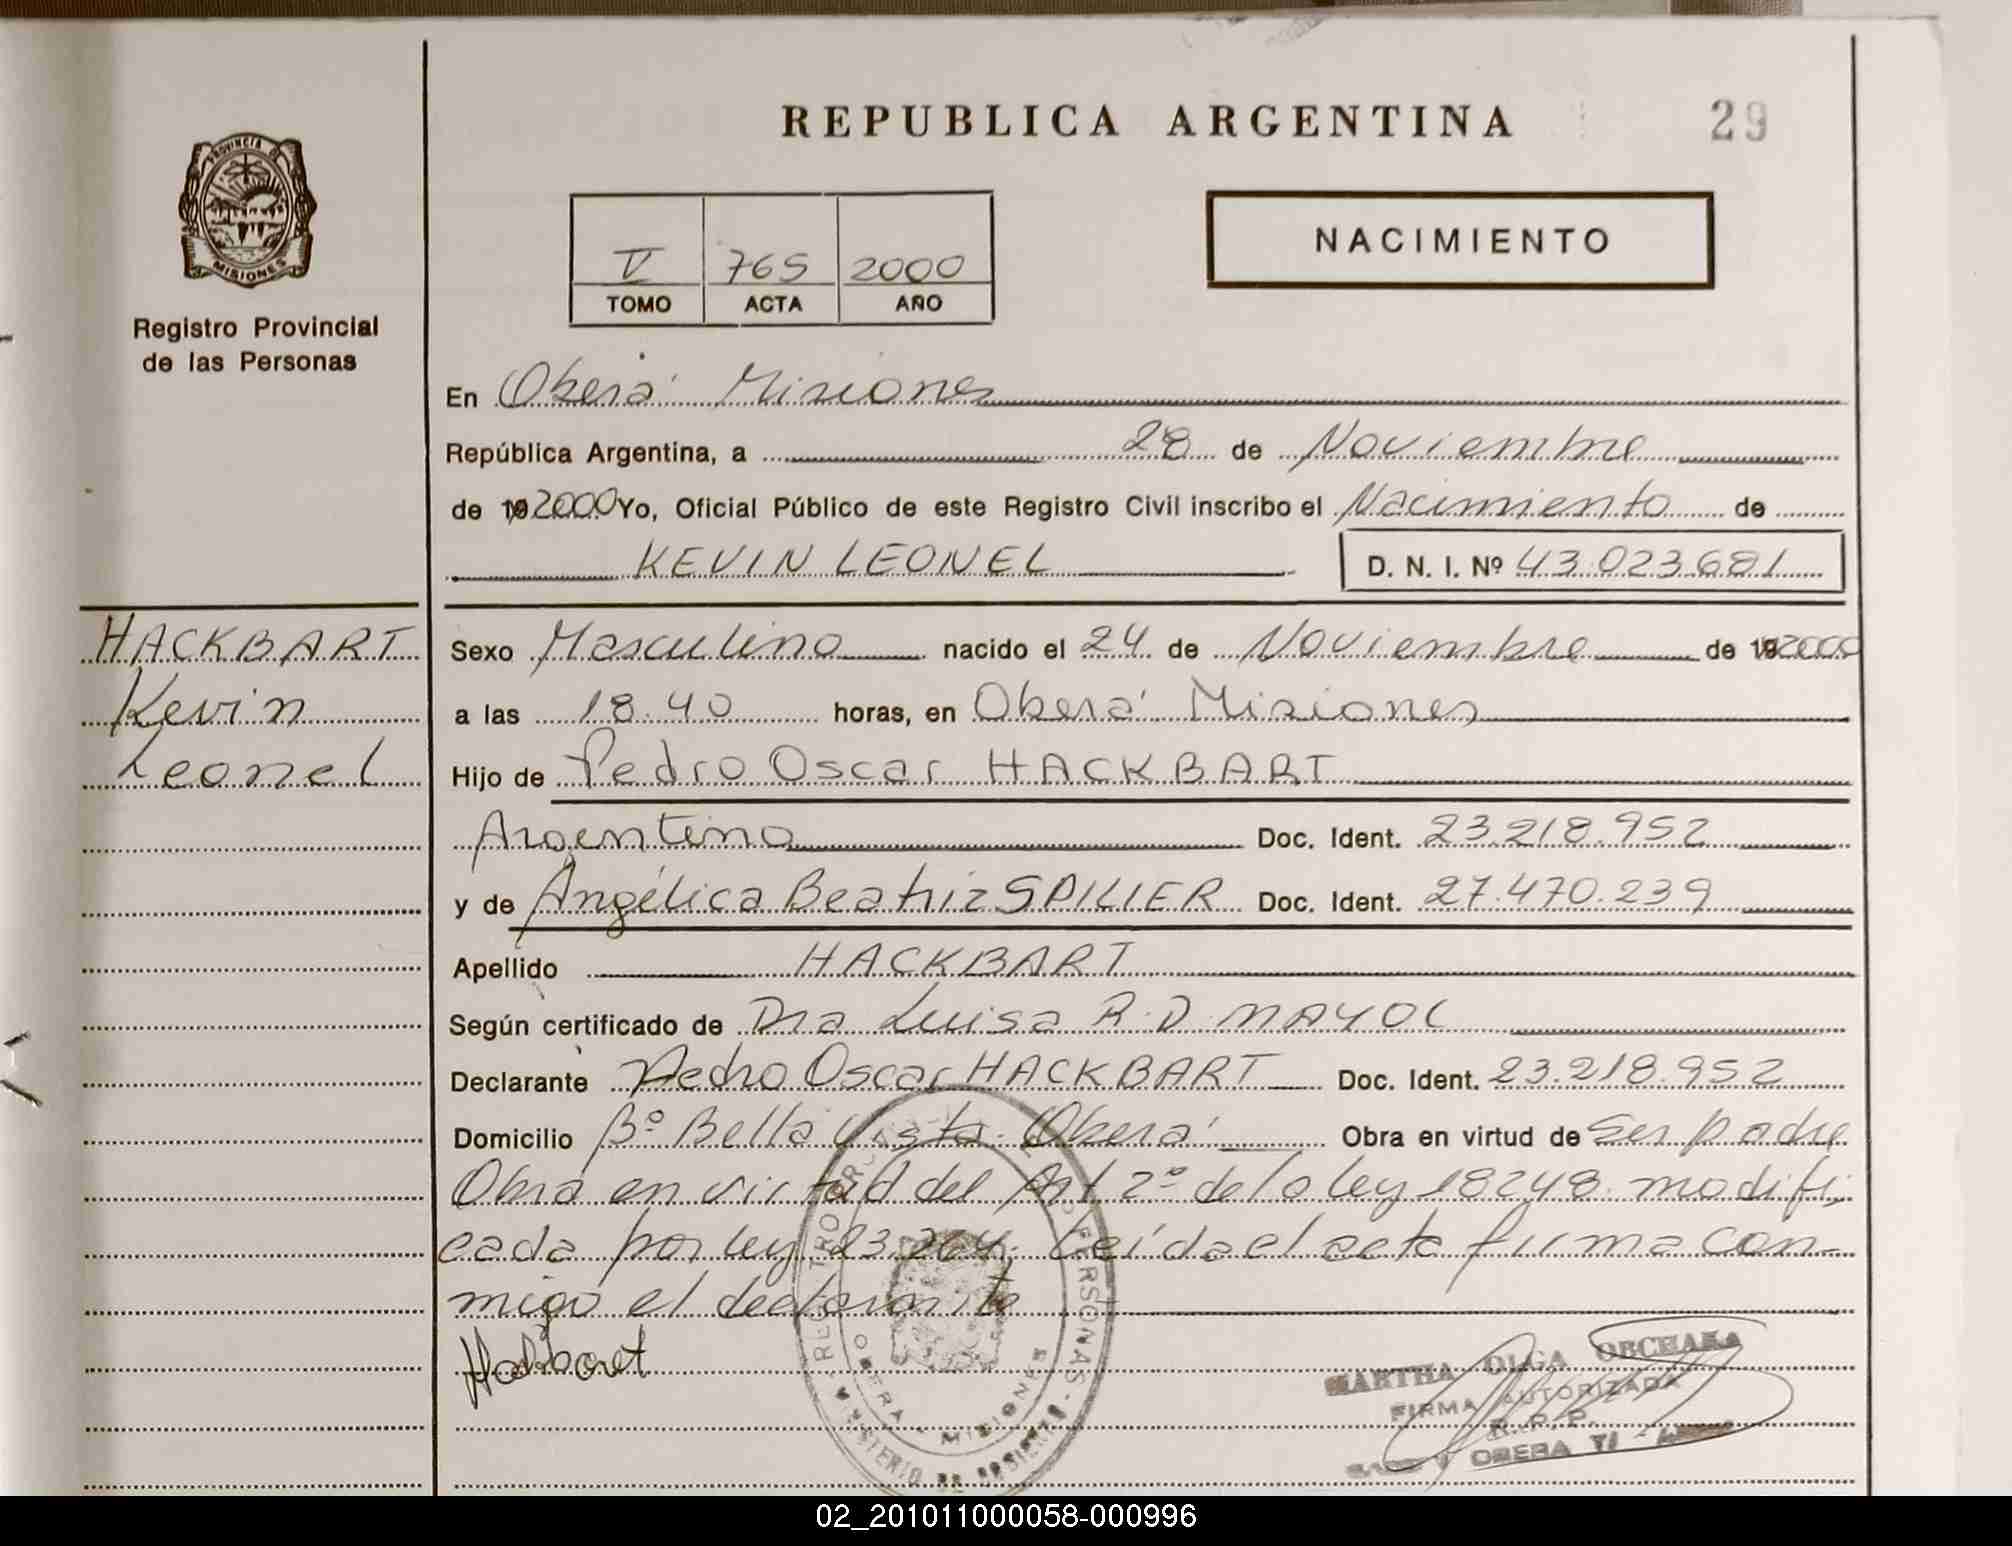 REPUBLICA ARGENTINA
29
PROVINCIA DE
MISIONES
Registro Provincial
de las Personas
V 765 2000
TOMO ACTA AÑO
NACIMIENTO
En Oberá Misiones
República Argentina, a 28 de Noviembre
de 19 2000 Yo, Oficial Público de este Registro Civil inscribo el Nacimiento de
KEVIN LEONEL D. N. I. Nº 43.023.681
HACKBART
Kevin
Leonel
Sexo Masculino nacido el 24 de Noviembre de 19 2000
a las 18.40 horas, en Oberá Misiones
Hijo de Pedro Oscar HACKBART
Argentino Doc. Ident. 23.218.952
y de Angélica Beatriz SPILIER Doc. Ident. 27.470.239
Apellido HACKBART
Según certificado de Dra Luisa R.D. MAYOL
Declarante Pedro Oscar HACKBART Doc. Ident. 23.218.952
Domicilio Bº Bella Vista. Oberá Obra en virtud de Ser padre
Obra en virtud del Art 2º de la ley 18248 modifi-
cada por ley 23.264. Leída el acta firma con-
migo el declarante
Hackbart
PERSONAS
OBERA MISIONES
MARTHA OLGA OBCHAKA
FIRMA AUTORIZADA
R. P. P.
OBERA
02_201011000058-000996